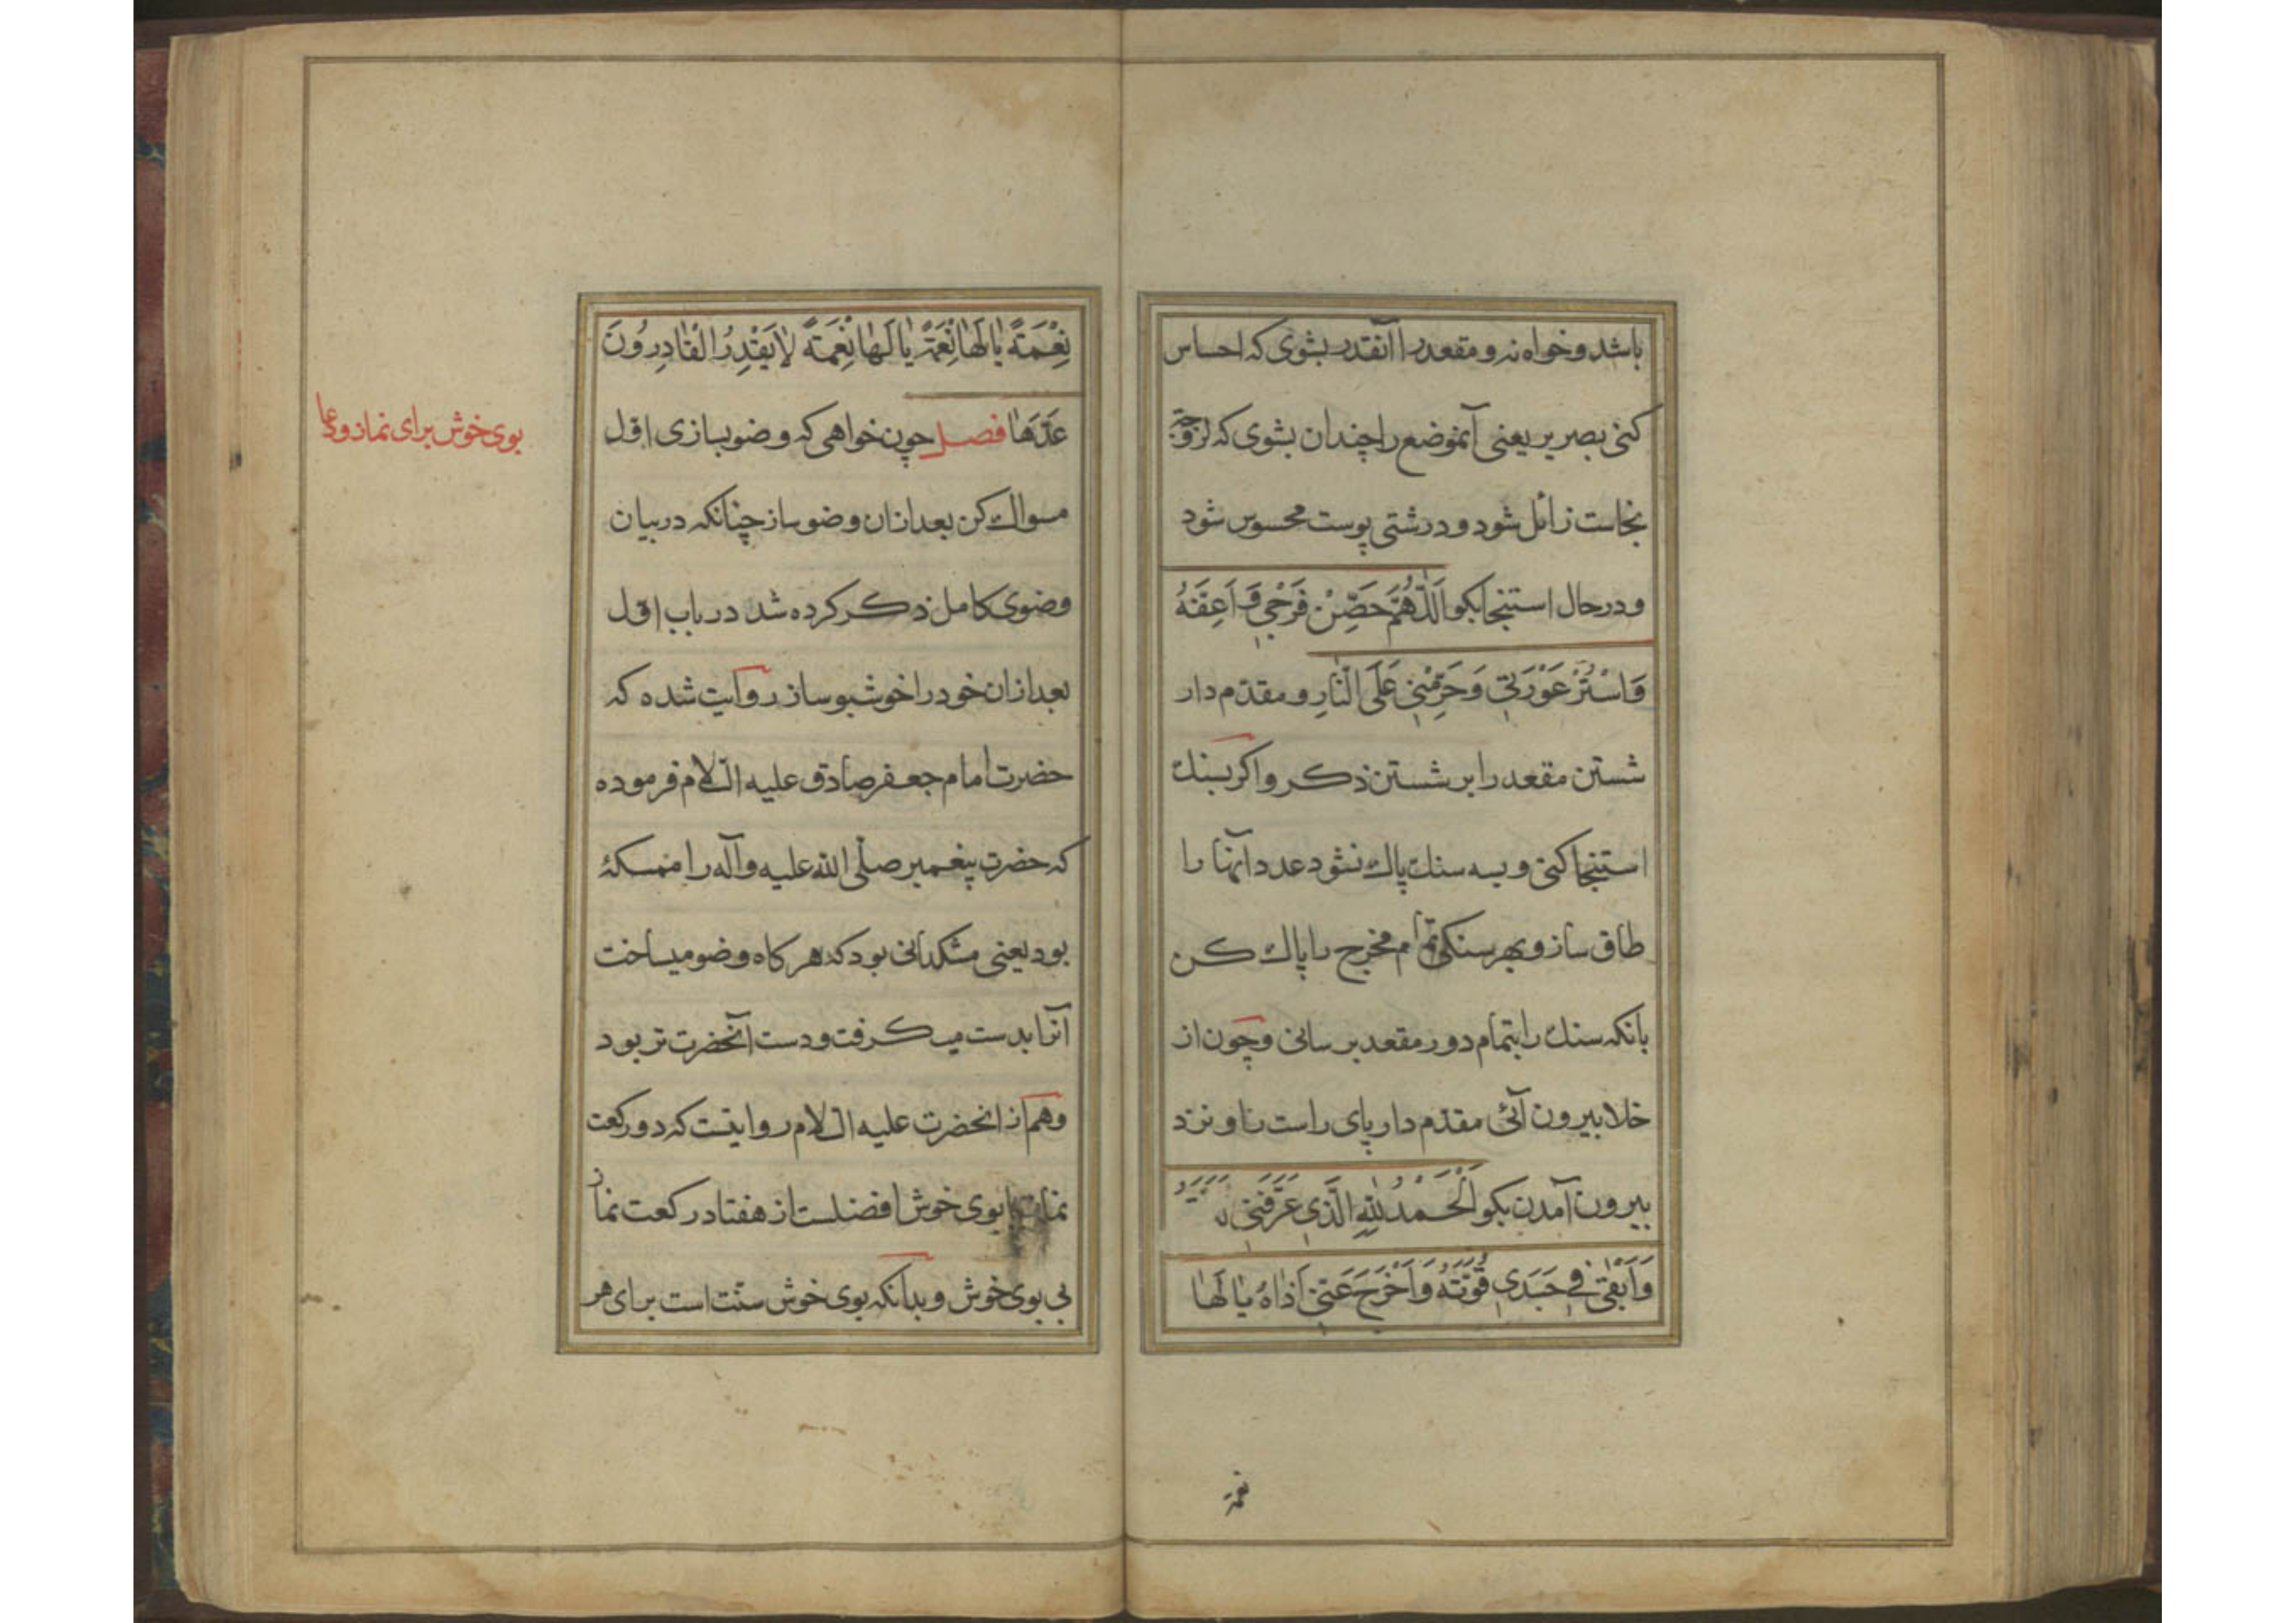 باشد و خواه نه و مقعد را آنقدر بشوی که احساس
کنی بصریر یعنی آنموضع را چندان بشوی که لزوجت
نجاست زائل شود و درشتی پوست محسوس شود
و در حال استنجا بکو اَللّٰهُمَّ حَصِّنْ فَرْجِي وَ اَعِفَّهُ
وَاسْتُرْ عَوْرَتِي وَحَرِّمْنِي عَلَى النّٰارِ و مقدّم دار
شستن مقعد را بر شستن ذکر و اکر بسنك
استنجا کنی و بسه سنك پاك نشود عدد آنها را
طاق ساز و بهر سنکی تمام مخرج را پاك کن
بانکه سنك را بتمام دور مقعد برسانی و چون از
خلا بیرون آئی مقدّم دار پای راست را و نزد
بیرون آمدن بکو اَلْحَمْدُ لِلّٰهِ الَّذِي عَرَّفَنِي
وَاَبْقٰى فِي جَسَدِي قُوَّتَهُ وَاَخْرَجَ عَنِّي اَذٰاهُ يٰا لَهٰا
نعمة
نِعْمَةً يٰا لَهٰا نِعْمَةً يٰا لَهٰا نِعْمَةً لٰا يَقْدِرُ الْقٰادِرُونَ
قَدْرَهٰا فصل چون خواهی که وضو بسازی اوّل
مسواك کن بعد ازان وضو ساز چنانکه در بیان
وضوی کامل ذکر کرده شد در باب اوّل
بعد ازان خود را خوشبو ساز روایت شده که
حضرت امام جعفر صادق علیه السّلام فرموده
که حضرت پیغمبر صلّی الله علیه و آله را ممسکهٔ
بود یعنی مشکدانی بود که هر کاه وضو میساخت
آنرا بدست میکرفت و دست آنحضرت تر بود
و هم از انحضرت علیه السّلام روایتست که دو رکعت
نماز با بوی خوش افضلست از هفتاد رکعت نماز
بی بوی خوش و بدانکه بوی خوش سنّت است برای هر
بوی خوش برای نماز و دعا